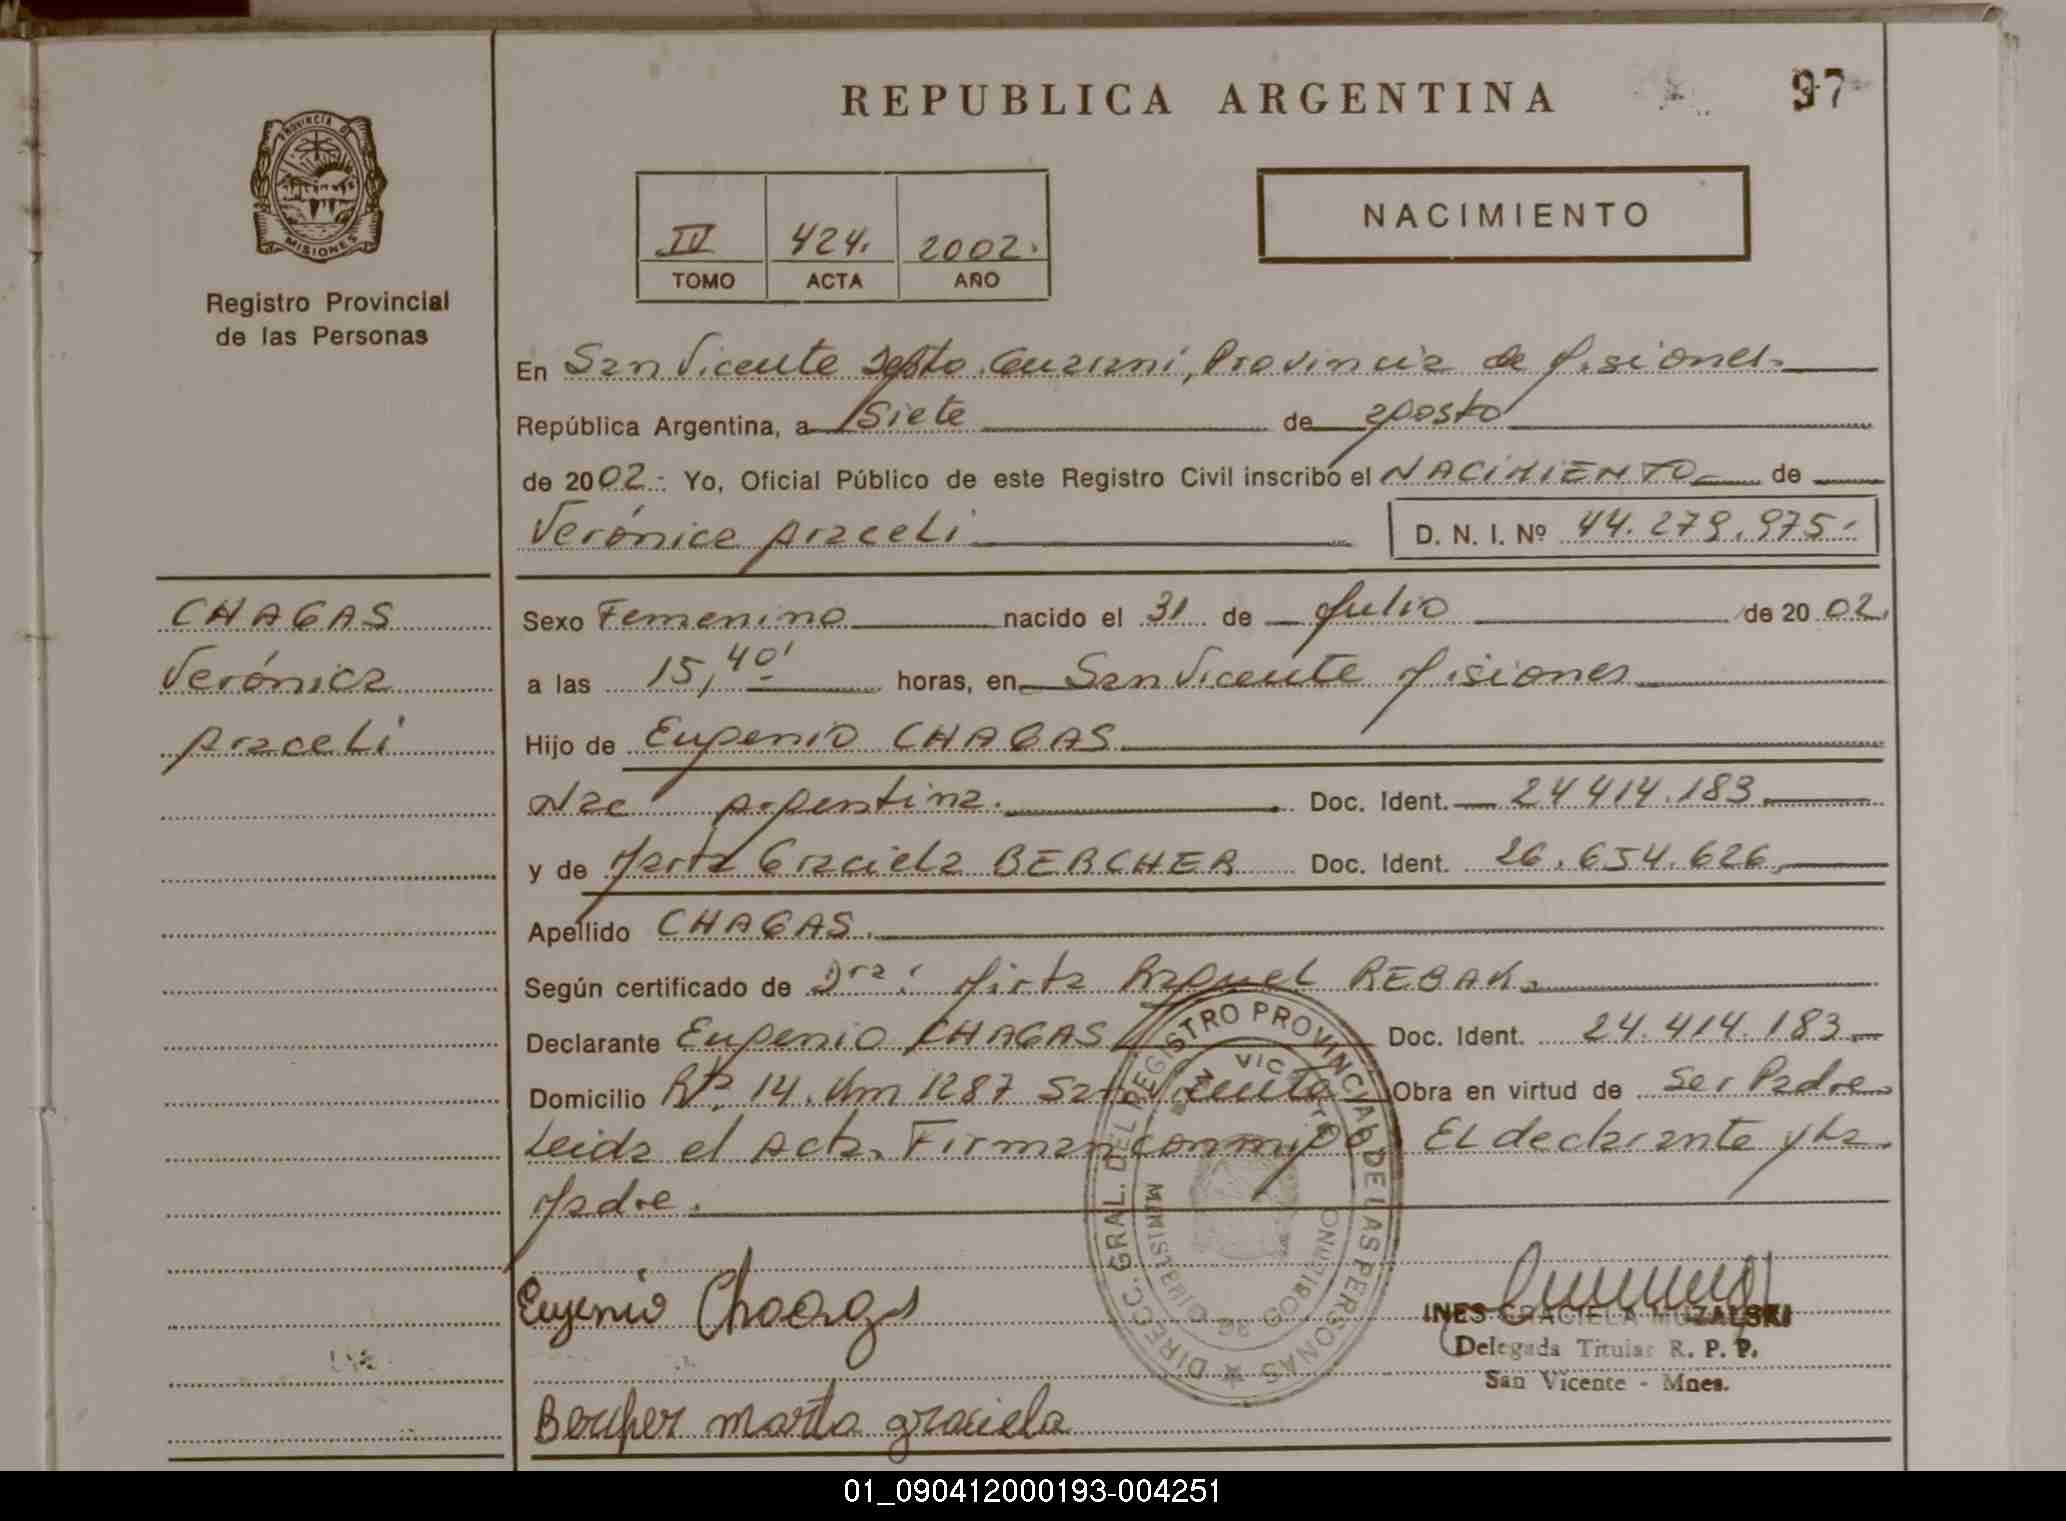 REPUBLICA ARGENTINA
97
PROVINCIA DE
MISIONES
Registro Provincial
de las Personas
IV 424. 2002.
TOMO ACTA AÑO
NACIMIENTO
En San Vicente Depto. Guarani, Provincia de Misiones
República Argentina, a Siete de agosto
de 2002.- Yo, Oficial Público de este Registro Civil inscribo el NACIMIENTO de
Verónica Araceli D. N. I. Nº 44.279.975.-
CHAGAS
Verónica
Araceli
Sexo Femenino nacido el 31 de Julio de 2002.
a las 15,40' horas, en San Vicente Misiones
Hijo de Eugenio CHAGAS
Nac. Argentina. Doc. Ident. 24 414.183
y de Marta Graciela BERCHER Doc. Ident. 26.654.626.
Apellido CHAGAS.
Según certificado de Dra: Mirta Raquel REBAK.
Declarante Eugenio CHAGAS Doc. Ident. 24.414.183
Domicilio Rta. 14. Km 1287 San Vicente Obra en virtud de Ser Padre
Leida el Acta. Firman conmigo El declarante y la
Madre.
DIRECC. GRAL. DEL REGISTRO PROVINCIAL DE LAS PERSONAS
MINISTERIO DE GOBIERNO
Eugenio Chagas
INES GRACIELA MUZALSKI
Delegada Titular R. P. P.
San Vicente - Mnes.
Bercher marta graciela
01_090412000193-004251